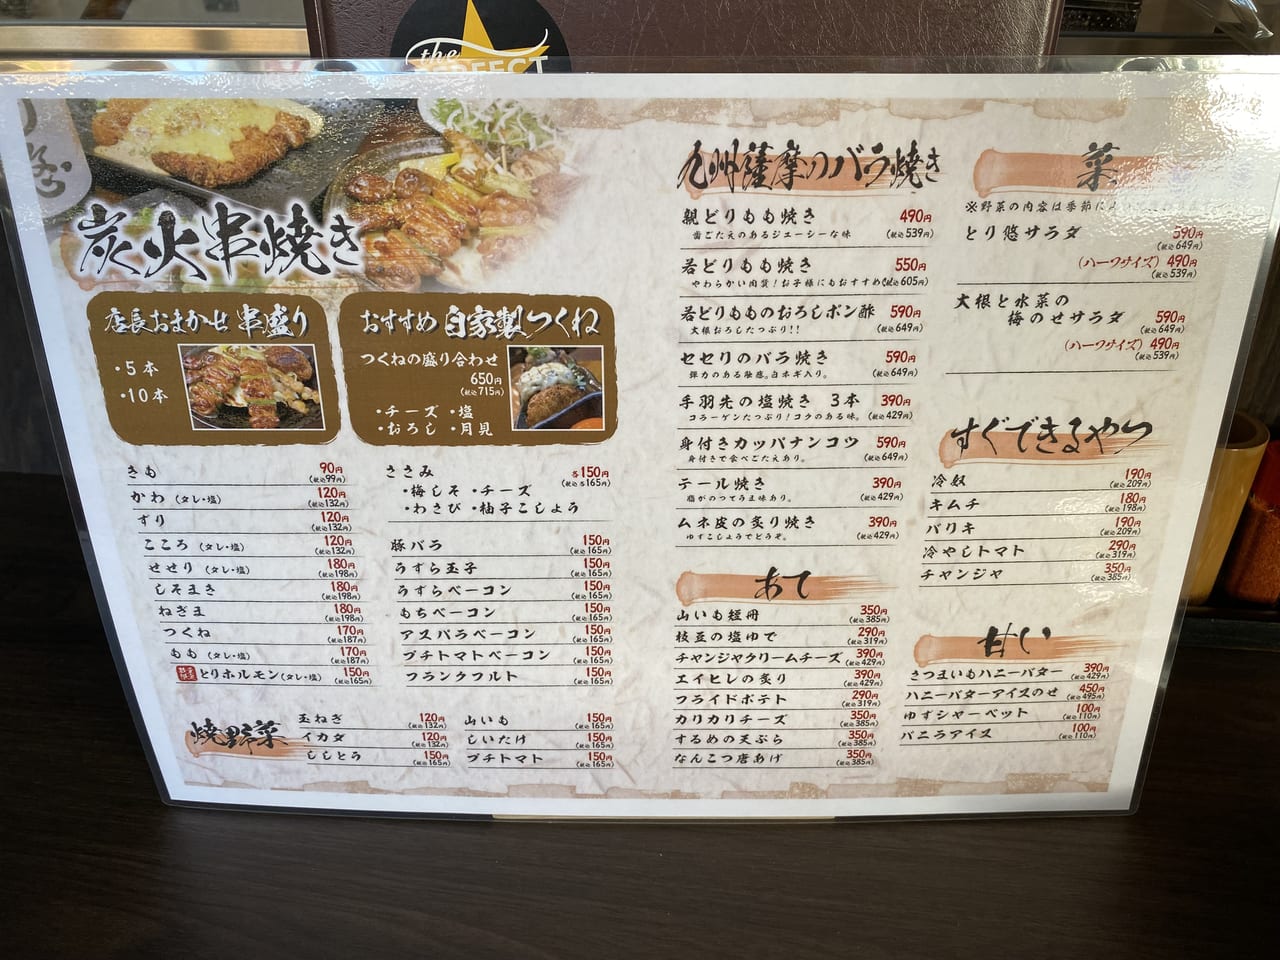 the
炭火串焼き
店長おまかせ 串盛り
・5本
・10本
おすすめ 自家製つくね
つくねの盛り合わせ
650円
(税込715円)
・チーズ ・塩
・おろし ・月見
きも 90円 (税込99円)
かわ (タレ・塩) 120円 (税込132円)
ずり 120円 (税込132円)
こころ (タレ・塩) 120円 (税込132円)
せせり (タレ・塩) 180円 (税込198円)
しそまき 180円 (税込198円)
ねぎま 180円 (税込198円)
つくね 170円 (税込187円)
もも (タレ・塩) 170円 (税込187円)
とりホルモン(タレ・塩) 150円 (税込165円)
ささみ 各150円 (税込各165円)
・梅しそ ・チーズ
・わさび ・柚子こしょう
豚バラ 150円 (税込165円)
うずら玉子 150円 (税込165円)
うずらベーコン 150円 (税込165円)
もちベーコン 150円 (税込165円)
アスパラベーコン 150円 (税込165円)
プチトマトベーコン 150円 (税込165円)
フランクフルト 150円 (税込165円)
焼野菜
玉ねぎ 120円 (税込132円)
イカダ 120円 (税込132円)
ししとう 150円 (税込165円)
山いも 150円 (税込165円)
しいたけ 150円 (税込165円)
プチトマト 150円 (税込165円)
九州薩摩のバラ焼き
親どりもも焼き 490円
歯ごたえのあるジューシーな味 (税込539円)
若どりもも焼き 550円
やわらかい肉質！お子様にもおすすめ (税込605円)
若どりもものおろしポン酢 590円
大根おろしたっぷり！！ (税込649円)
セセリのバラ焼き 590円
弾力のある触感。白ネギ入り。 (税込649円)
手羽先の塩焼き 3本 390円
コラーゲンたっぷり！コクのある味。 (税込429円)
身付きカッパナンコツ 590円
身付きで食べごたえあり。 (税込649円)
テール焼き 390円
脂がのってうま味あり。 (税込429円)
ムネ皮の炙り焼き 390円
ゆずこしょうでどうぞ。 (税込429円)
あて
山いも短冊 350円 (税込385円)
枝豆の塩ゆで 290円 (税込319円)
チャンジャクリームチーズ 390円 (税込429円)
エイヒレの炙り 390円 (税込429円)
フライドポテト 290円 (税込319円)
カリカリチーズ 350円 (税込385円)
するめの天ぷら 350円 (税込385円)
なんこつ唐あげ 350円 (税込385円)
菜
※野菜の内容は季節に
とり悠サラダ 590円
(税込649円)
(ハーフサイズ) 490円
(税込539円)
大根と水菜の
梅のせサラダ 590円
(税込649円)
(ハーフサイズ) 490円
(税込539円)
すぐできるやつ
冷奴 190円 (税込209円)
キムチ 180円 (税込198円)
パリキ 190円 (税込209円)
冷やしトマト 290円 (税込319円)
チャンジャ 350円 (税込385円)
甘い
さつまいもハニーバター 390円 (税込429円)
ハニーバターアイスのせ 450円 (税込495円)
ゆずシャーベット 100円 (税込110円)
バニラアイス 100円 (税込110円)